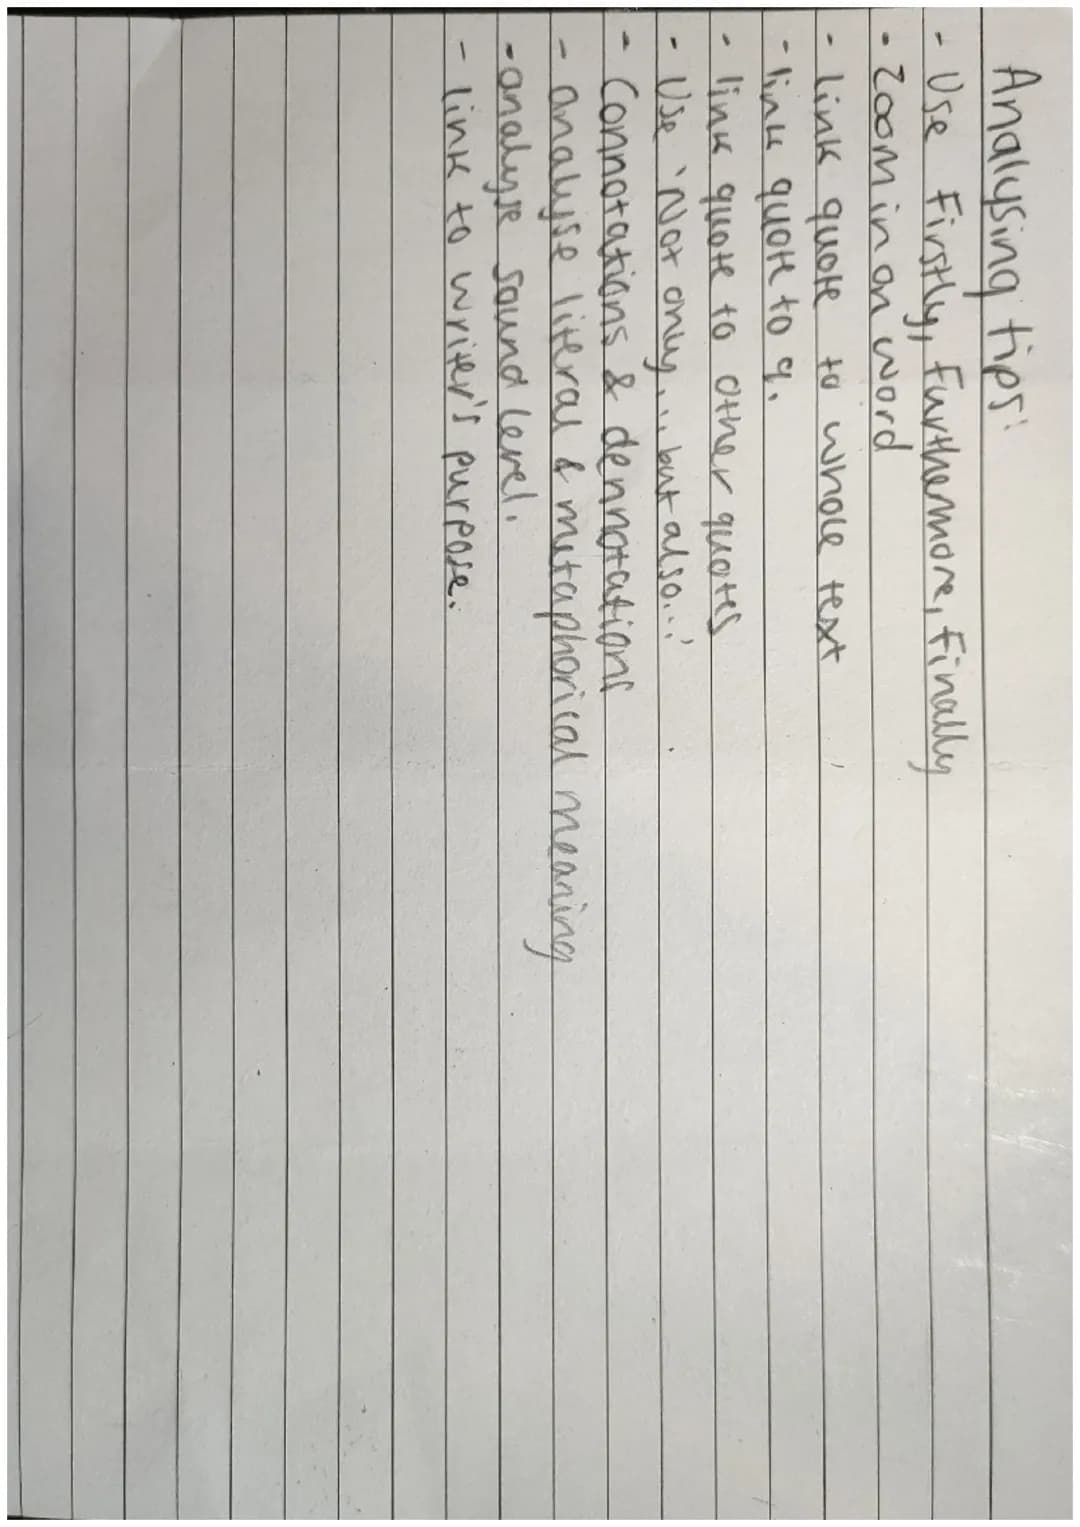 Analysing tips:
- Use Firstly, Furthermore, Finally
- Zoom in on word
- Link quote to whole text
- link quote to q.
- link quote to other quotes
- Use 'Not only... but also...'
- Connotations & dennotations
- analyse literal & metaphorical meaning
- analyse sound level.
- link to writer's purpose.